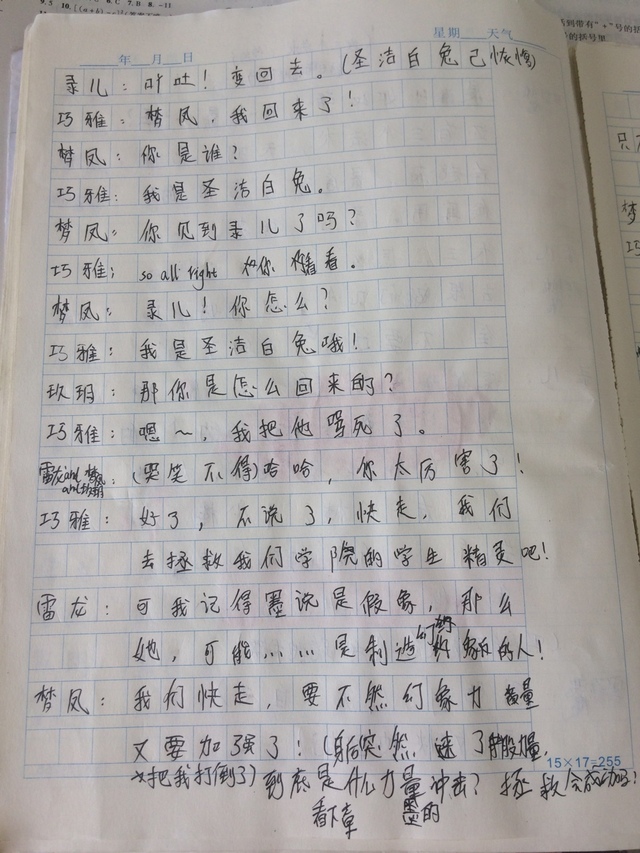 9.5 10. 6.C 7.B 8.-11
年 月 日 星期 天气
录儿：叶吐！变回去。（圣洁白兔已恢复）
巧雅：梦凤，我回来了！
梦凤：你是谁？
巧雅：我是圣洁白兔。
梦凤：你见到录儿了吗？
巧雅：so all right 看。
梦凤：录儿！你怎么？
巧雅：我是圣洁白兔哦！
玖玥：那你是怎么回来的？
巧雅：嗯～，我把他骂死了。
雷龙and梦凤and玖玥：（哭笑不得）哈哈，你太厉害了！
巧雅：好了，不说了，快走，我们
去拯救我们学院的学生精灵吧！
雷龙：可我记得墨说是假象，那么
她，可能……是制造幻象的人！
梦凤：我们快走，要不然幻象力量
又要加强了！（身后突然 了 股力量，
把我打倒了）到底是什么力量冲击？拯救会成功吗？
看下章 墨的
15×17=255
到带有"+"号的括
的括号里
只
梦
巧